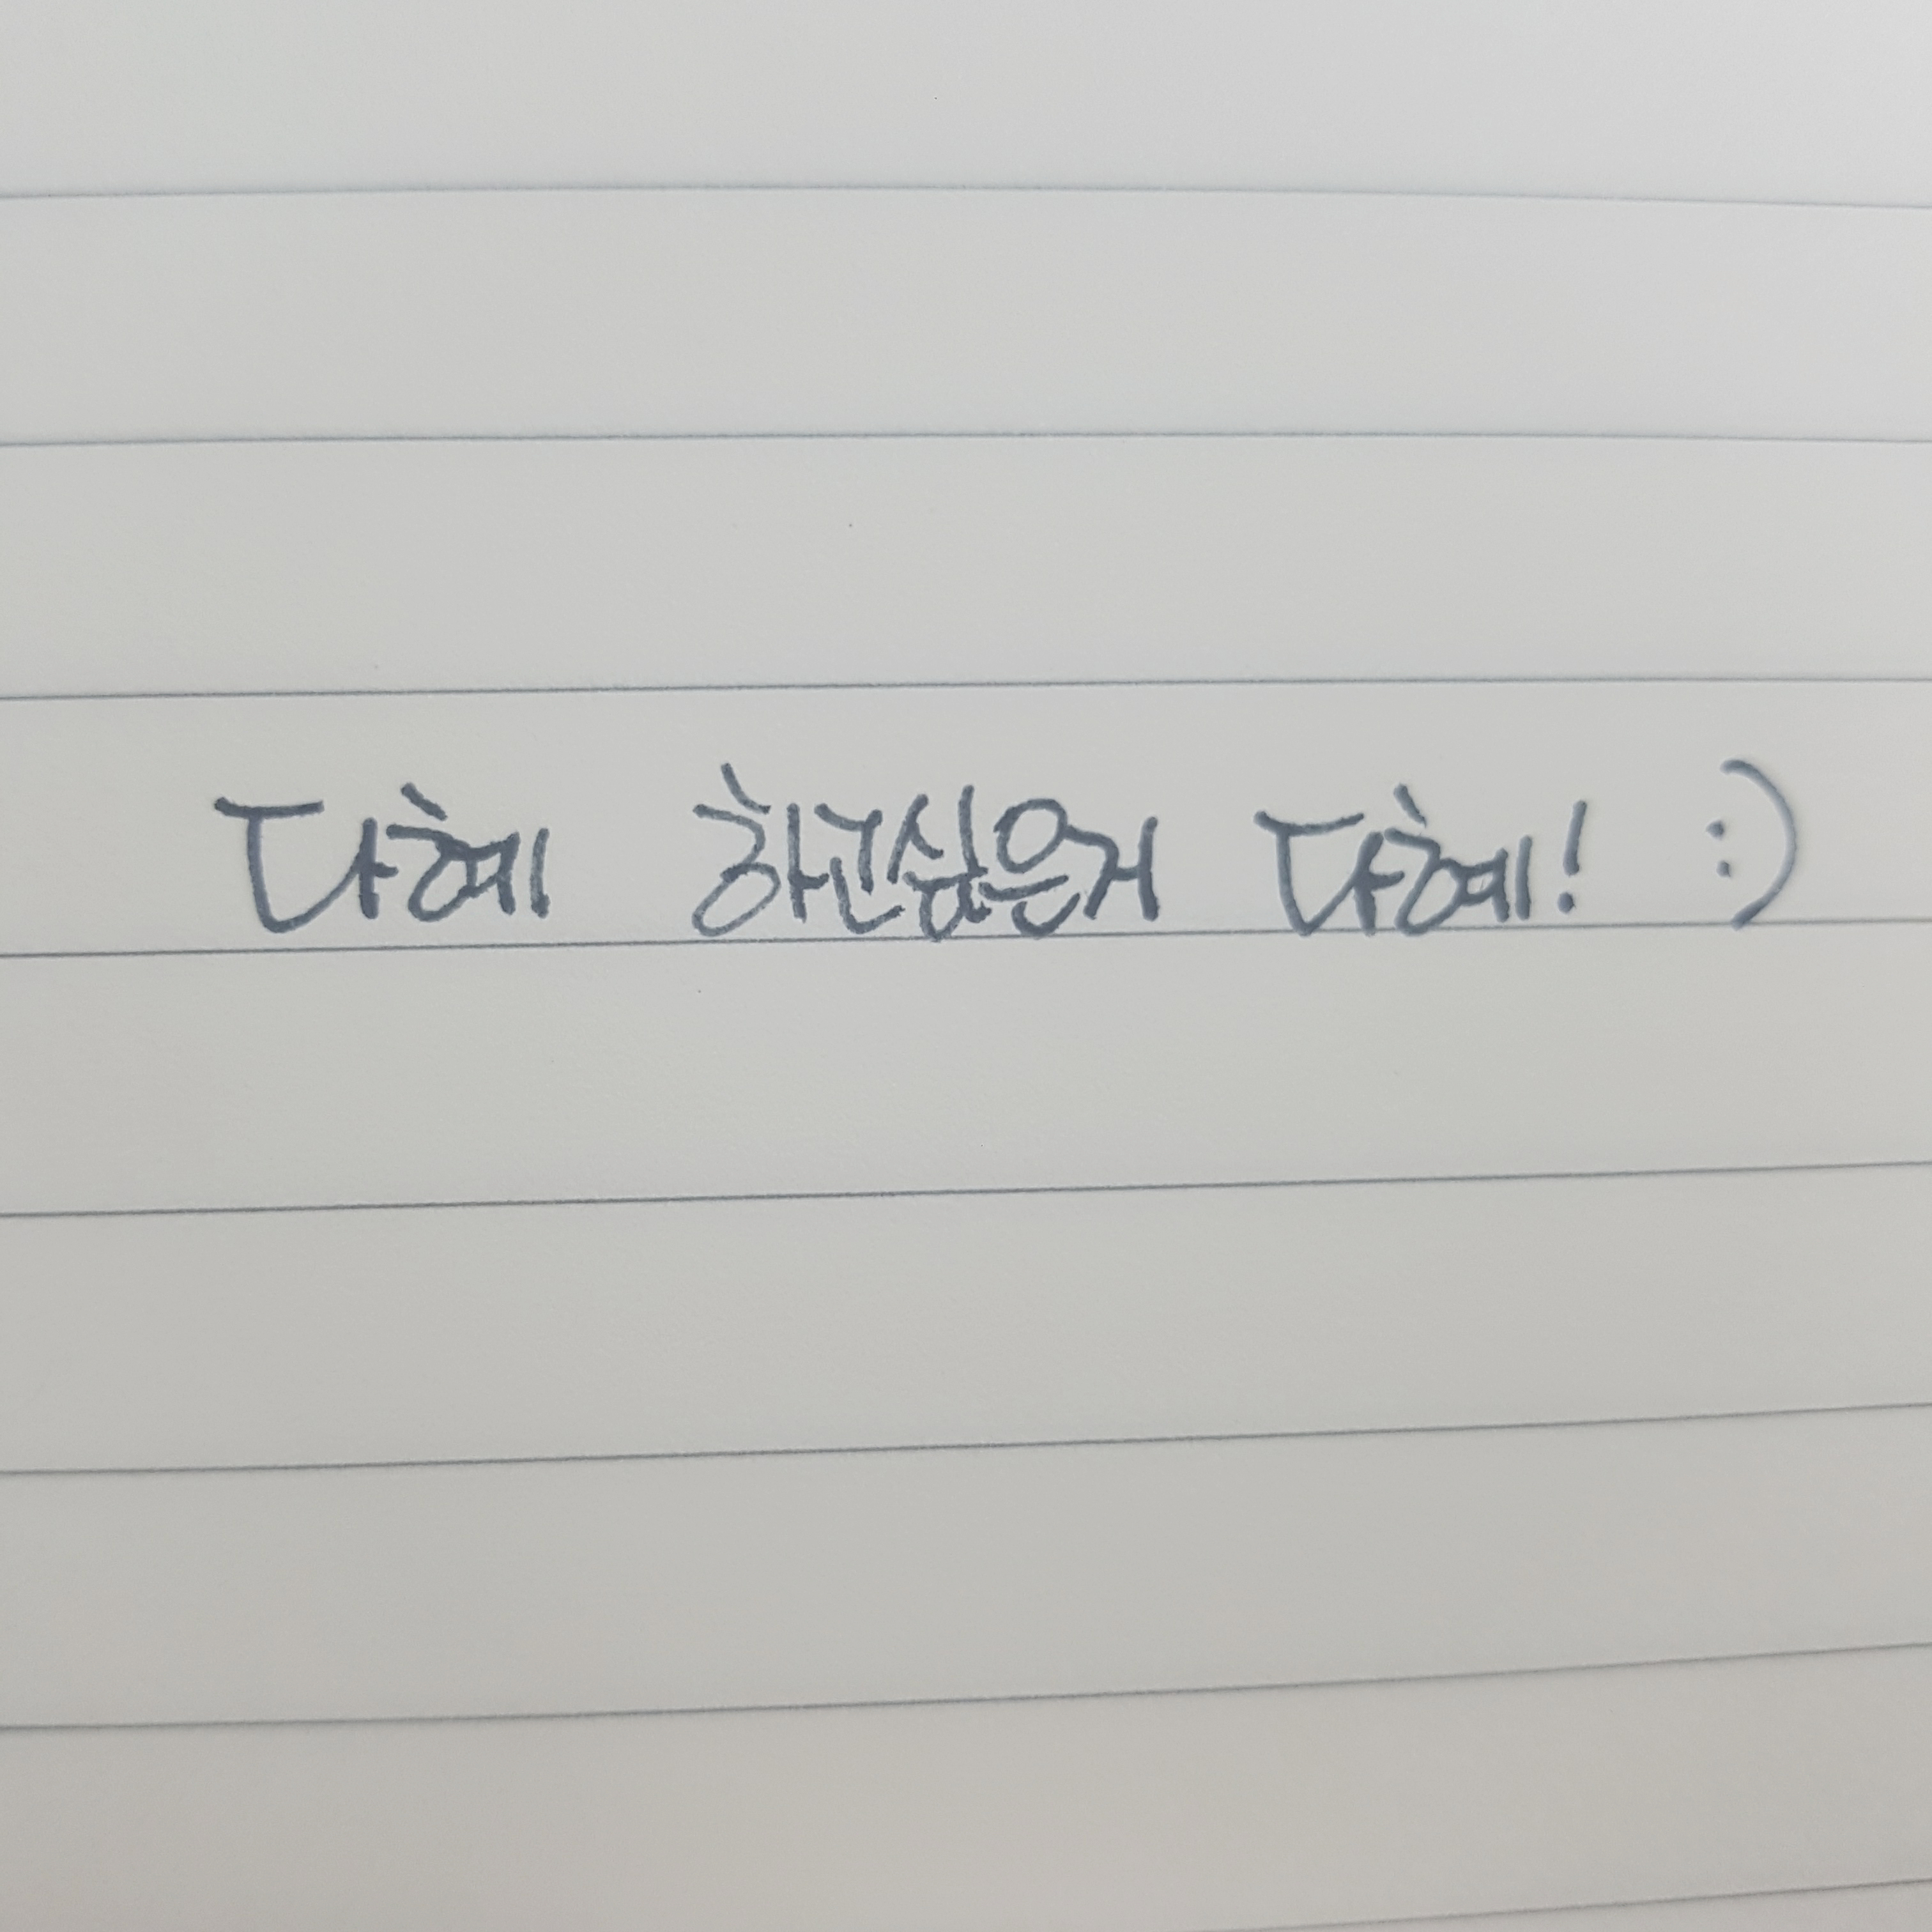 다혜 하고싶은거 다해! :)